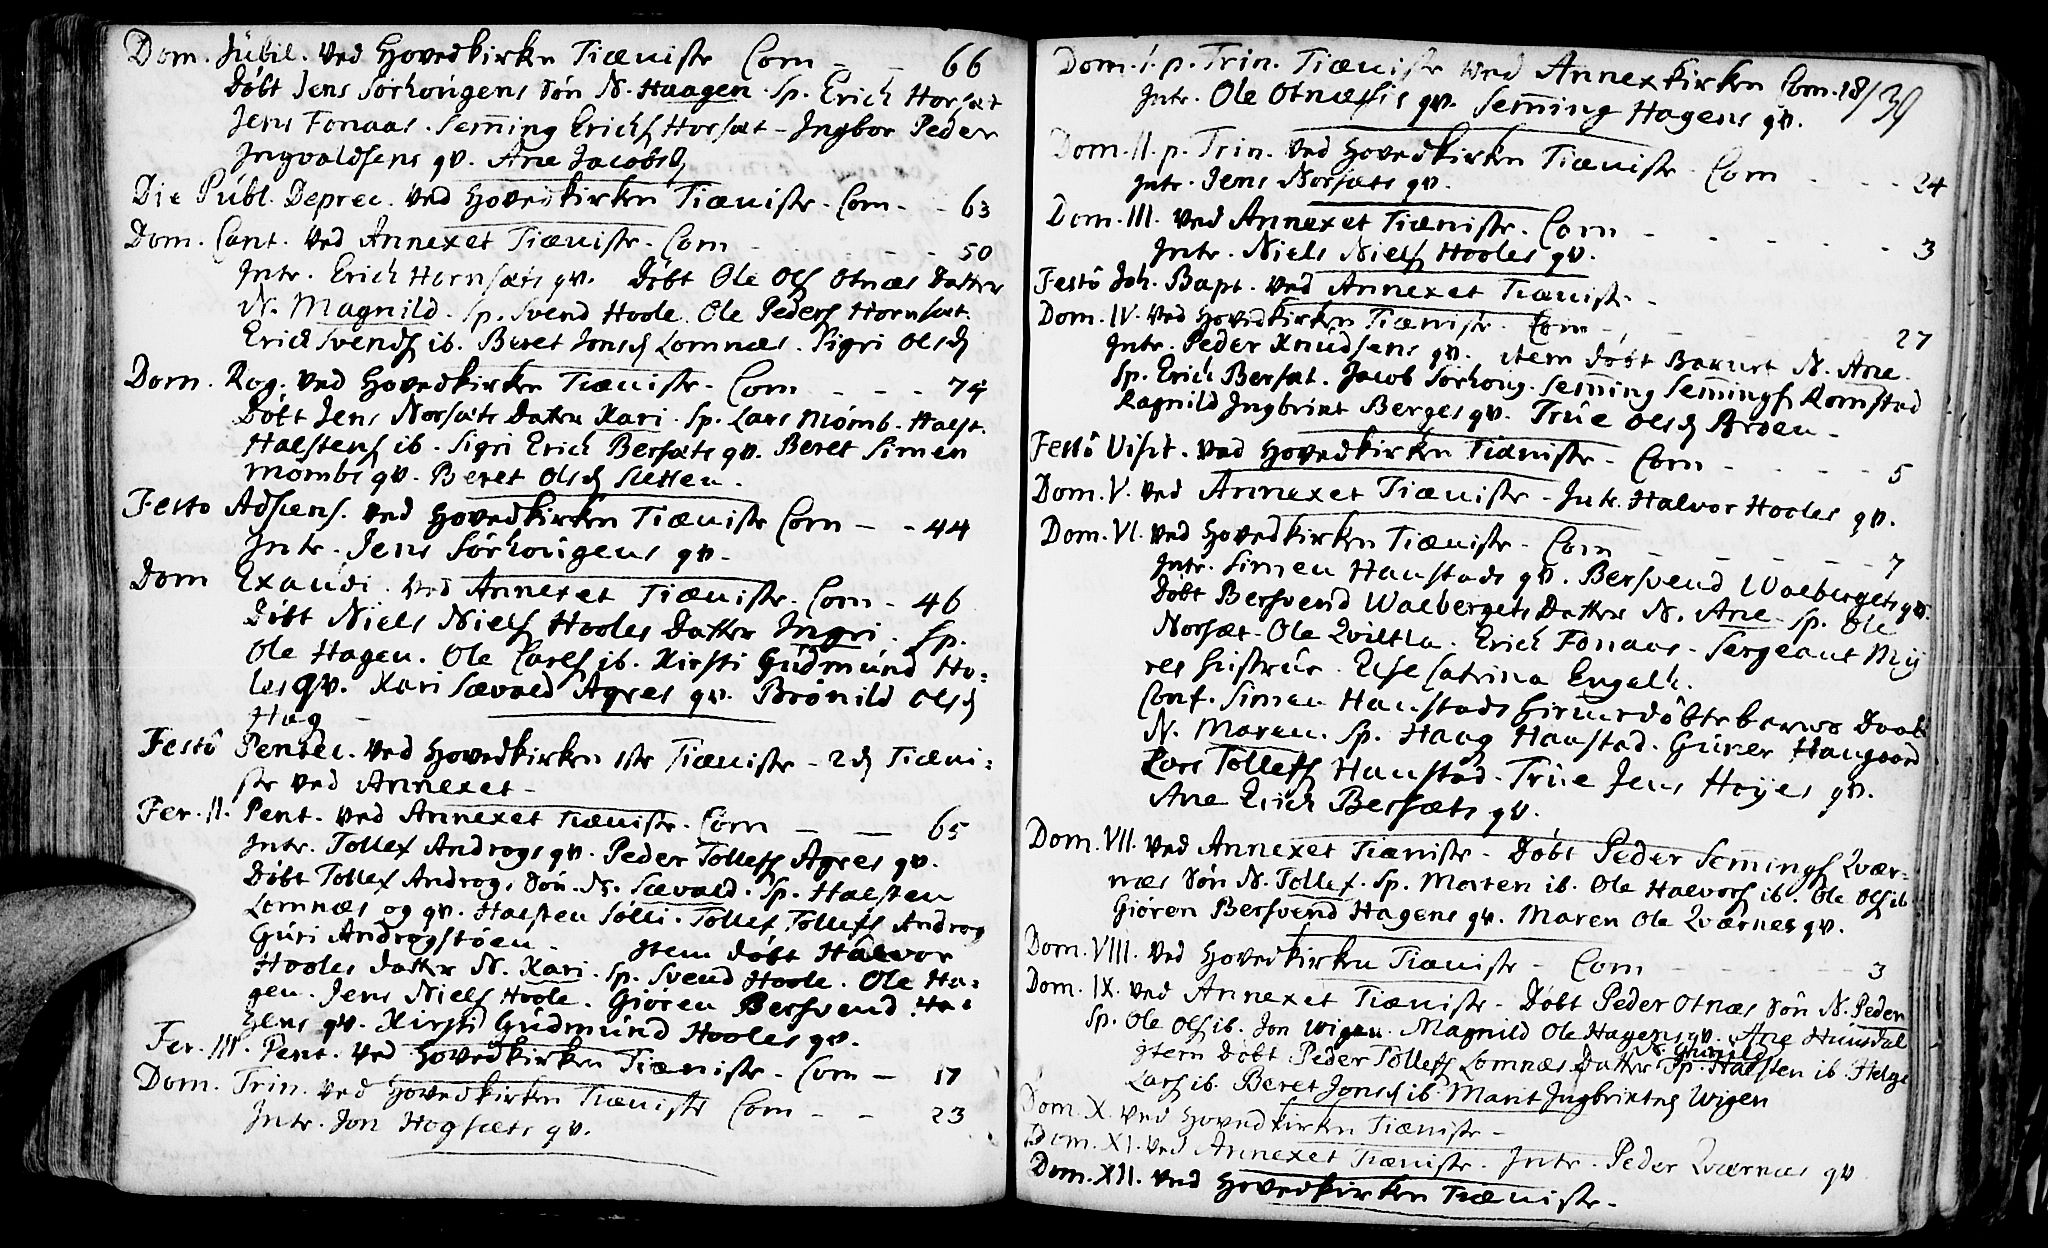 Dom. Jubil. ved Hovedkirken Tiæniste Com - - 66
Döbt Jens Sörhougens Sön N. Haagen. Sp. Erich Horsæt
Jens Fonaas. Seming Erichs Horsæt - Ingbor Peder
Ingvaldsens qv. Ane Jacobsd
Die Publ. Deprec. ved Hovedkirken Tiæniste. Com - - 63
Dom. Cant. ved Annexet Tiæniste. Com - - - 50
Intr. Erich Hornsæts qv. Döbt Ole Ols Otnæs Datter
N. Magnild. Sp. Svend Hoole. Ole Peders Hornsæt.
Erich Svends ib. Beret Jonsd Lomnæs. Sigri Olsd
Dom. Rog. ved Hovedkirken Tiæniste. Com - - - 74
Döbt Jens Norsæts Datter Kari. Sp. Lars Momb. Halst.
Halstens ib. Sigri Erich Bersæts qv. Beret Simen
Mombs qv. Beret Olsd Sletten.
Festo Adscens. ved Hovedkirken Tiæniste Com - - 44
Intr. Jens Sörhougens qv.
Dom Exaudi. ved Annexet Tiæniste. Com - 46
Döbt Niels Niels Hooles Datter Ingri. Sp.
Ole Hagen. Ole Carls ib. Kirsti Gudmund Ho-
les qv. Kari Sævald Agres qv. Brönild Olsd
Hag
Festo Pentec. ved Hovedkirken 1ste Tiæniste - 2d Tiæni-
ste ved Annexet -
Fer. II. Pent. ved Annexet Tiæniste. Com - - 65
Intr. Tollef Androgs qv. Peder Tollefs Agres qv.
Döbt Tollef Androgs Sön. N. Sævald. Sp. Halsten
Lomnæs og qv. Halsten Solli. Tollef Tollefs Androg
Guri Androgstöen. Item döbt Halvor
Hooles datter N. Kari. Sp. Svend Hoole. Ole Ha-
gen. Jens Niels Hoole. Giören Bersvend Ha-
gens qv. Kirsti Gudmund Hooles qv.
Fer. III. Pent. ved Hovedkirken Tiæniste. Com - 17
Dom. Trin. ved Hovedkirken Tiæniste Com - - 23
Intr. Jon Hogsæts qv.
Dom. I. p. Trin. Tiæniste ved Annexkirken Com. 18/39
Intr. Ole Otnæsis qv. Seming Hagens qv.
Dom. II. p. Trin. ved Hovedkirken Tiæniste. Com - - - 24
Intr. Jens Norsæts qv.
Dom. III. ved Annexet Tiæniste. Com - - - - 3
Intr. Niels Niels Hooles qv.
Festo Joh. Bapt. ved Annexet Tiæniste. -
Dom. IV. ved Hovedkirken Tiæniste. Com - - - 27
Intr. Peder Knudsens qv. item döbt Bakurt N. Ane.
Sp. Erich Bersæt. Jacob Sörhoug. Seming Semings Romstad
Ragnild Ingbrikt Berges qv. True Olsd Broen -
Festo Visit. ved Hovedkirken Tiæniste - Com - - - - 5
Dom. V. ved Annexet Tiæniste - Intr. Halvor Hooles qv.
Dom. VI. ved Hovedkirken Tiæniste. Com - - - - 7
Intr. Simen Haustads qv. Bersvend Walbergets qv.
Döbt Bersvend Walbergets Datter N. Ane. Sp. Ole
Norsæt. Ole Qviltla. Erich Fonaas. Sergeant Mÿ
res Else Catrina Engelh.
Conf. Simen Haustads hiemedöbte barns Daab
N. Maren. Sp. Haag Haustad. Guner Haugaard
Lars Tollefs Haustad. True Jens Hoÿes qv.
Ane Erich Bersæts qv.
Dom. VII. ved Annexet Tiæniste. Döbt Peder Semings Qvær-
næs Sön N. Tollef. Sp. Morten ib. Ole Halvors ib. Ole Ols ib
Giören Bersvend Hagens qv. Maren Ole Qværnes qv.
Dom. VIII. ved Hovedkirken Tiæniste - Com - - - - 3
Dom. IX. ved Annexet Tiæniste. Döbt Peder Otnæs Sön N. Peder
Sp. Ole Ols ib. Jon Wigen. Magnild Ole Hagens qv. Ane Hunsdal
N. Gunild
Item Döbt Peder Tollefs Lomnæs Datter Sp. Halsten ib. Helge
Lars ib. Beret Jonsd ib. Marit Ingbriktsd Wigen
Dom. X. ved Hovedkirken Tiæniste -
Dom. XI. ved Annexet Tiæniste. Intr. Peder Qværnæs qv
Dom. XII. ved Hovedkirken Tiæniste -